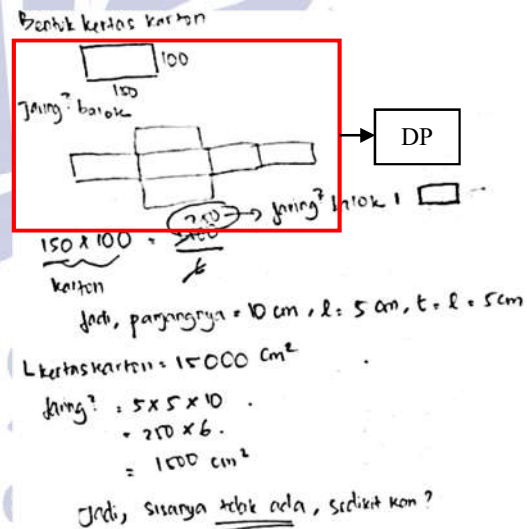 Bentuk kertas karton
100
150
Jaring² balok
DP
250 → jaring² balok 1
150 x 100 =
karton
Jadi, panjangnya = 10 cm, l = 5 cm, t = l = 5 cm
L kertas karton = 15000 cm²
Jaring² = 5 x 5 x 10
= 250 x 6.
= 1500 cm²
Jadi, sisanya tdk ada, sedikit kan?